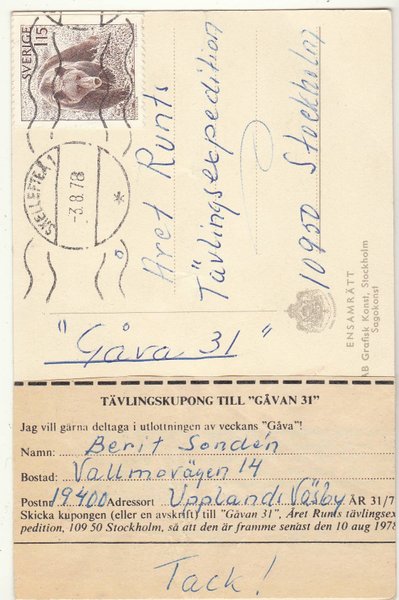 SVERIGE 115
SKELLEFTEÅ 1
-3.8.78
Året Runt
Tävlingsexpedition
10950 Stockholm
ENSAMRÄTT
AB Grafisk Konst, Stockholm
Sagokonst
"Gåva 31"
TÄVLINGSKUPONG TILL "GÅVAN 31"
Jag vill gärna deltaga i utlottningen av veckans "Gåva"!
Namn: Berit Sondén
Bostad: Vallmovägen 14
Postnr 19400 Adressort Upplands Väsby ÅR 31/7
Skicka kupongen (eller en avskrift) till "Gåvan 31", Året Runts tävlingsex-
pedition, 109 50 Stockholm, så att den är framme senast den 10 aug 1978
Tack!